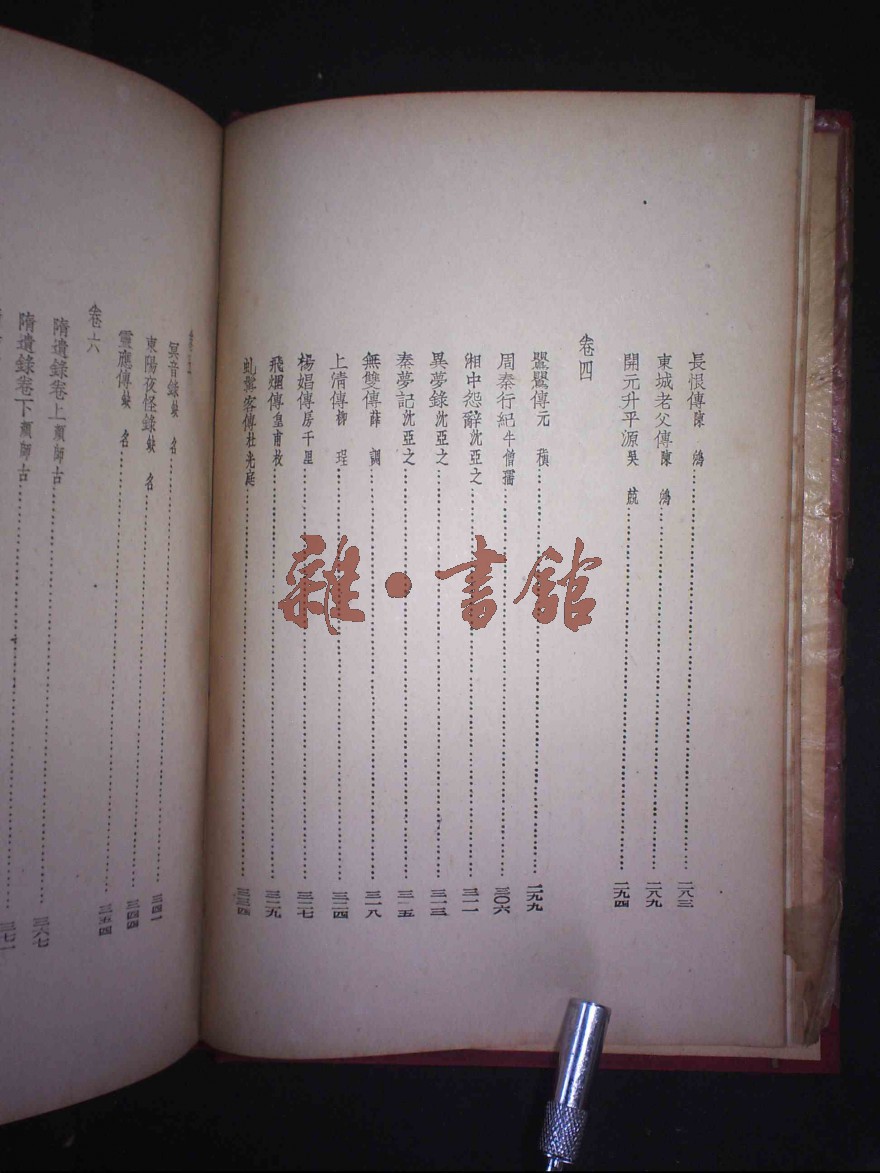 長恨傳陳　鴻……二八三
東城老父傳陳　鴻……二八九
開元升平源吳　兢……二九四
卷四
鶯鶯傳元　稹……二九九
周秦行紀牛僧孺……三〇六
湘中怨辭沈亞之……三一一
異夢錄沈亞之……三一三
秦夢記沈亞之……三一五
無雙傳薛　調……三一八
上清傳柳　珵……三二四
楊娼傳房千里……三二七
飛煙傳皇甫枚……三二九
虬髯客傳杜光庭……三三四
卷五
冥音錄缺　名……三四一
東陽夜怪錄缺　名……三四四
靈應傳缺　名……三五四
卷六
隋遺錄卷上顏師古……三六七
隋遺錄卷下顏師古……三七一
雜·書館